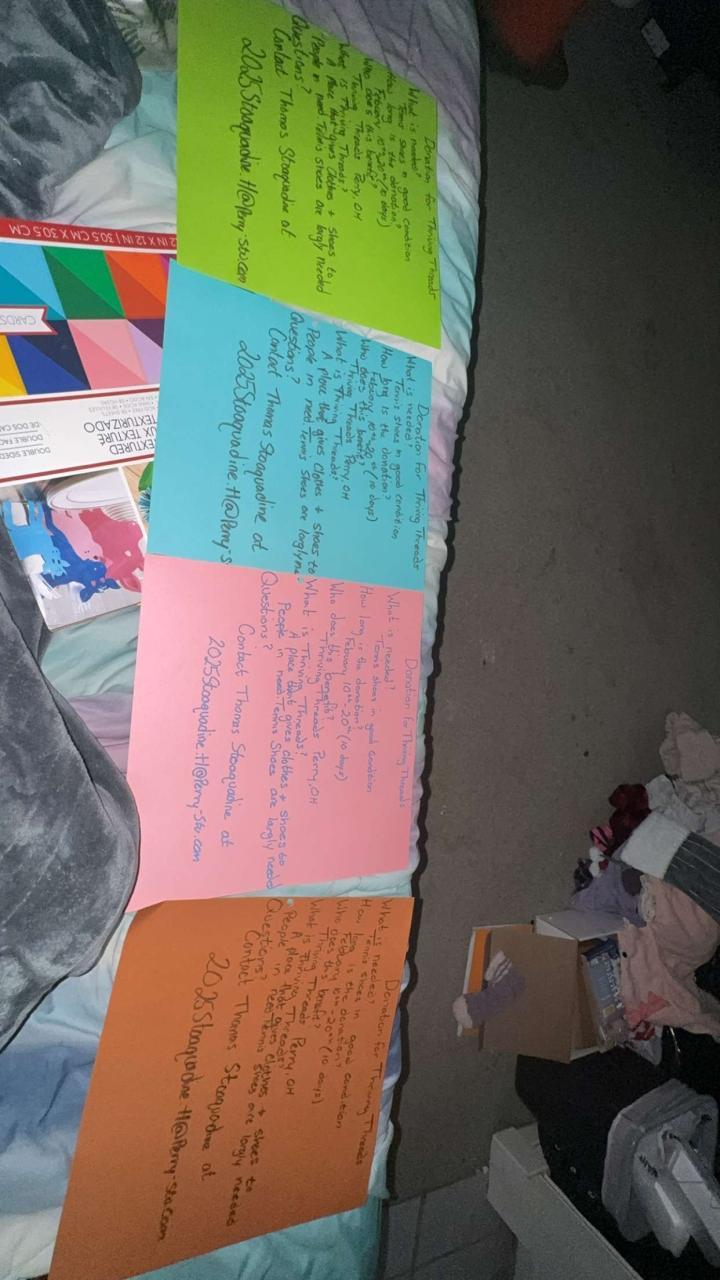 Donation for Thriving Threads
What is needed?
Tennis shoes in good condition
How long is the donation?
Febuary 10th-20th (10 days)
Who does this benefit?
Thriving Threads Perry, OH
What is Thriving Threads?
A place that gives clothes + shoes to
People in need. Tennis shoes are largly needed
Questions?
Contact Thomas Staaquadine at
2025Staaquadine.tl@Perry-sto.com
Donation for Thriving Threads
What is needed?
Tennis shoes in good condition
How long is the donation?
Febuary 10th-20th (10 days)
Who does this benefit?
Thriving Threads Perry, OH
What is Thriving Threads?
A place that gives clothes + shoes to
People in need. Tennis shoes are largly
Questions?
Contact Thomas Staaquadine at
2025Staaquadine.tl@Perry-s
Donation for Thriving Threads
What is needed?
Tennis shoes in good condition
How long is the donation?
Febuary 10th-20th (10 days)
Who does this benefit?
Thriving Threads Perry, OH
What is Thriving Threads?
A place that gives clothes + shoes to
People in need. Tennis Shoes are largly needed
Questions?
Contact Thomas Staaquadine at
2025Staaquadine.tl@Perry-sto.com
Donation for Thriving Threads
What is needed?
Tennis shoes in good condition
How long is the donation?
Febuary 10th-20th (10 days)
Who does this benefit?
Thriving Threads Perry, OH
What is Thriving Threads?
A place that gives clothes + shoes to
People in need. Tennis shoes are largly needed
Questions?
Contact Thomas Staaquadine at
2025Staaquadine.tl@Perry-sto.com
2 IN X 12 IN | 30.5 CM X 30.5 CM
CARDS
TEXTURED
UX TEXTURE
TEXTURIZADO
DOUBLE SIDED
DOUBLE FAC
DE DOS CAR